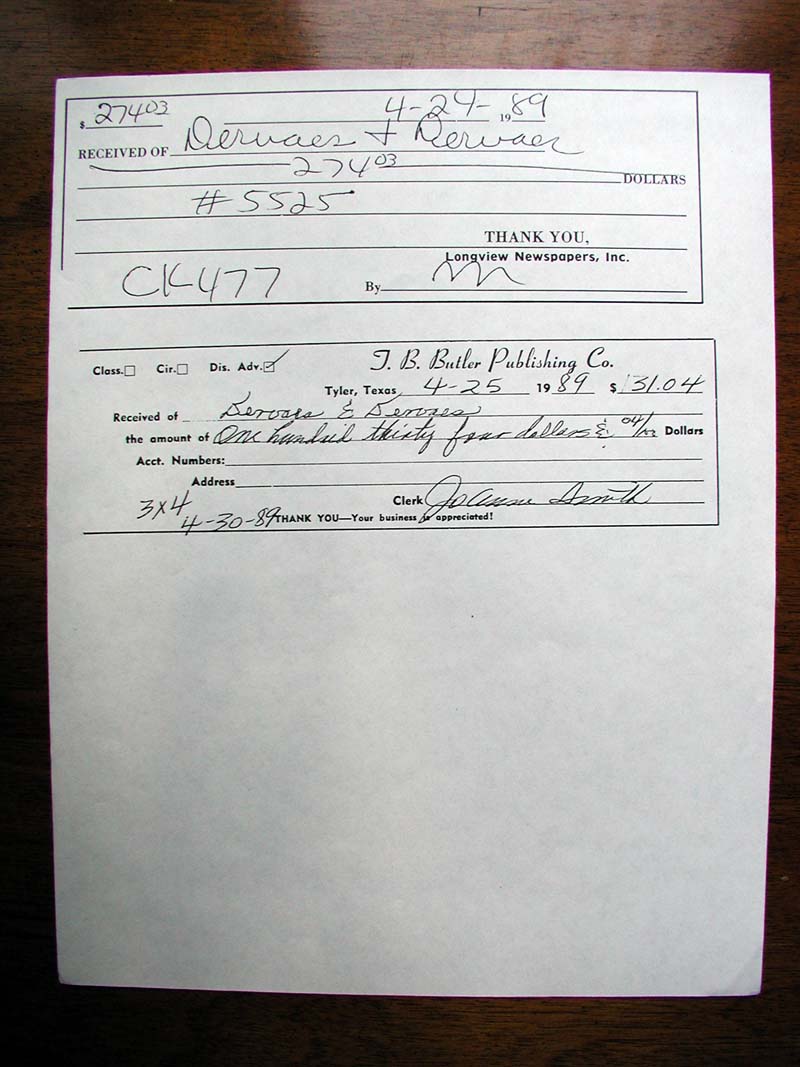 $ 274 03 4-24- 1989
RECEIVED OF Dervaes + Dervaes
274 03 DOLLARS
#5525
THANK YOU,
Longview Newspapers, Inc.
CK 477 By
Class. Cir. Dis. Adv. ✓ T. B. Butler Publishing Co.
Tyler, Texas 4-25 1989 $ 131.04
Received of Dervaes & Dervaes
the amount of One hundred thirty four dollars & 04/100 Dollars
Acct. Numbers:
Address
3x4 Clerk JoAnne Smith
4-30-89 THANK YOU—Your business is appreciated!